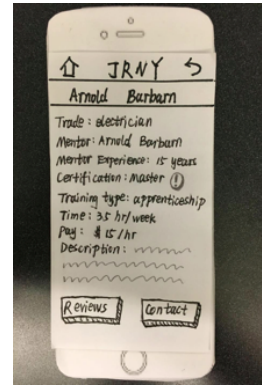 JRNY
Arnold Barbarn
Trade: electrician
Mentor: Arnold Barbarn
Mentor Experience: 15 years
Certification: Master !
Training type: apprenticeship
Time: 35 hr/week
Pay: $15/hr
Description:
Reviews
Contact